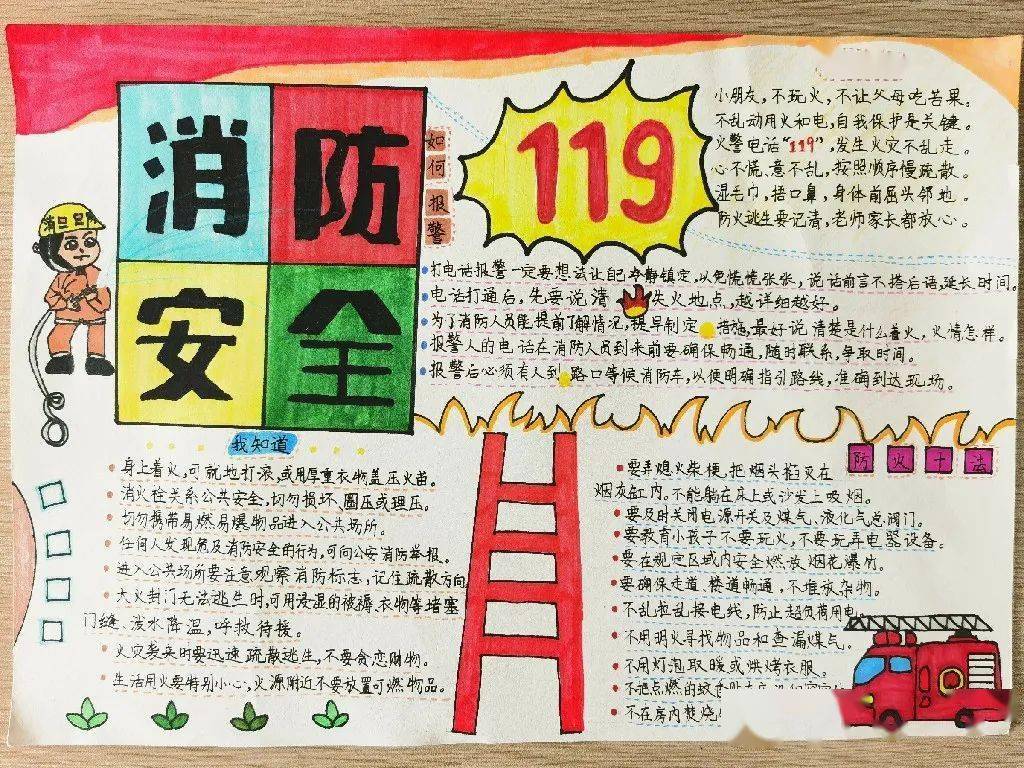 消防
安全
如何报警
119
小朋友，不玩火，不让父母吃苦果。
不乱动用火和电，自我保护是关键。
火警电话“119”，发生火灾不乱走。
心不慌、意不乱，按照顺序慢疏散。
湿毛巾，捂口鼻，身体前屈头邻地。
防火逃生要记清，老师家长都放心。
打电话报警一定要想法让自己冷静镇定，以免慌慌张张，说话前言不搭后语，延长时间。
电话打通后，先要说清失火地点，越详细越好。
为了消防人员能提前了解情况，提早制定措施，最好说清楚是什么着火，火情怎样。
报警人的电话在消防人员到来前要确保畅通，随时联系，争取时间。
报警后必须有人到路口等候消防车，以便明确指引路线，准确到达现场。
我知道
身上着火，可就地打滚，或用厚重衣物盖压火苗。
消火栓关系公共安全，切勿损坏、圈压或埋压。
切勿携带易燃易爆物品进入公共场所。
任何人发现危及消防安全的行为，可向公安消防举报。
进入公共场所要注意观察消防标志，记住疏散方向
大火封门无法逃生时，可用浸湿的被褥、衣物等堵塞
门缝、泼水降温，呼救待援。
火灾袭来时要迅速疏散逃生，不要贪恋财物。
生活用火要特别小心，火源附近不要放置可燃物品。
防火十法
要弄熄火柴梗，把烟头掐灭在
烟灰缸内。不能躺在床上或沙发上吸烟。
要及时关闭电源开关及煤气、液化气总阀门。
要教育小孩子不要玩火，不要玩弄电器设备。
要在规定区域内安全燃放烟花爆竹。
要确保走道、楼道畅通，不堆放杂物。
不乱拉乱接电线，防止超负荷用电。
不用明火寻找物品和查漏煤气。
不用灯泡取暖或烘烤衣服。
不把点燃的蚊香
不在房内焚烧